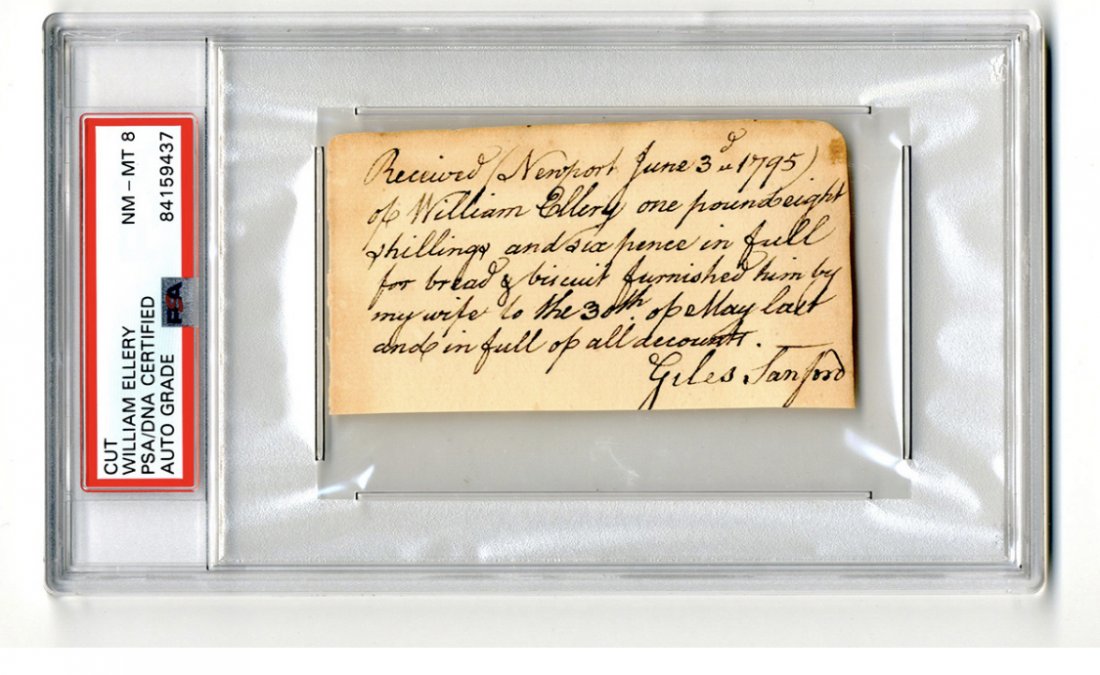 CUT
WILLIAM ELLERY
PSA/DNA CERTIFIED
AUTO GRADE
NM - MT 8
84159437
PSA
Received (Newport June 3d 1795)
of William Ellery one pound eight
shillings and six pence in full
for bread & biscuit furnished him by
my wife to the 30th of May last
and in full of all accounts.
Giles Sanford